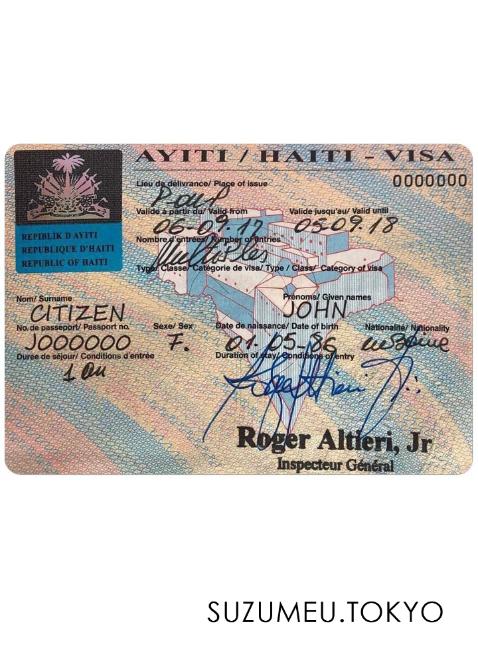 AYITI / HAITI - VISA
0000000
REPIBLIK D AYITI
REPUBLIQUE D'HAITI
REPUBLIC OF HAITI
Lieu de délivrance/ Place of issue
P-au-P
Valide à partir du/ Valid from Valide jusqu'au/ Valid until
06-09.17 05-09.18
Nombre d'entrées/ Number of entries
Multiples
Type/ Classe/ Catégorie de visa/ Type / Class/ Category of visa
Nom/ Surname Prénoms/ Given names
CITIZEN JOHN
No. de passeport/ Passport no. Sexe/ Sex Date de naissance/ Date of birth Nationalité/ Nationality
J000000 F. 01.05-86
Durée de séjour/ Conditions d'entrée Duration of stay/ Conditions of entry
1 an
Roger Altieri, Jr
Inspecteur Général
SUZUMEU.TOKYO